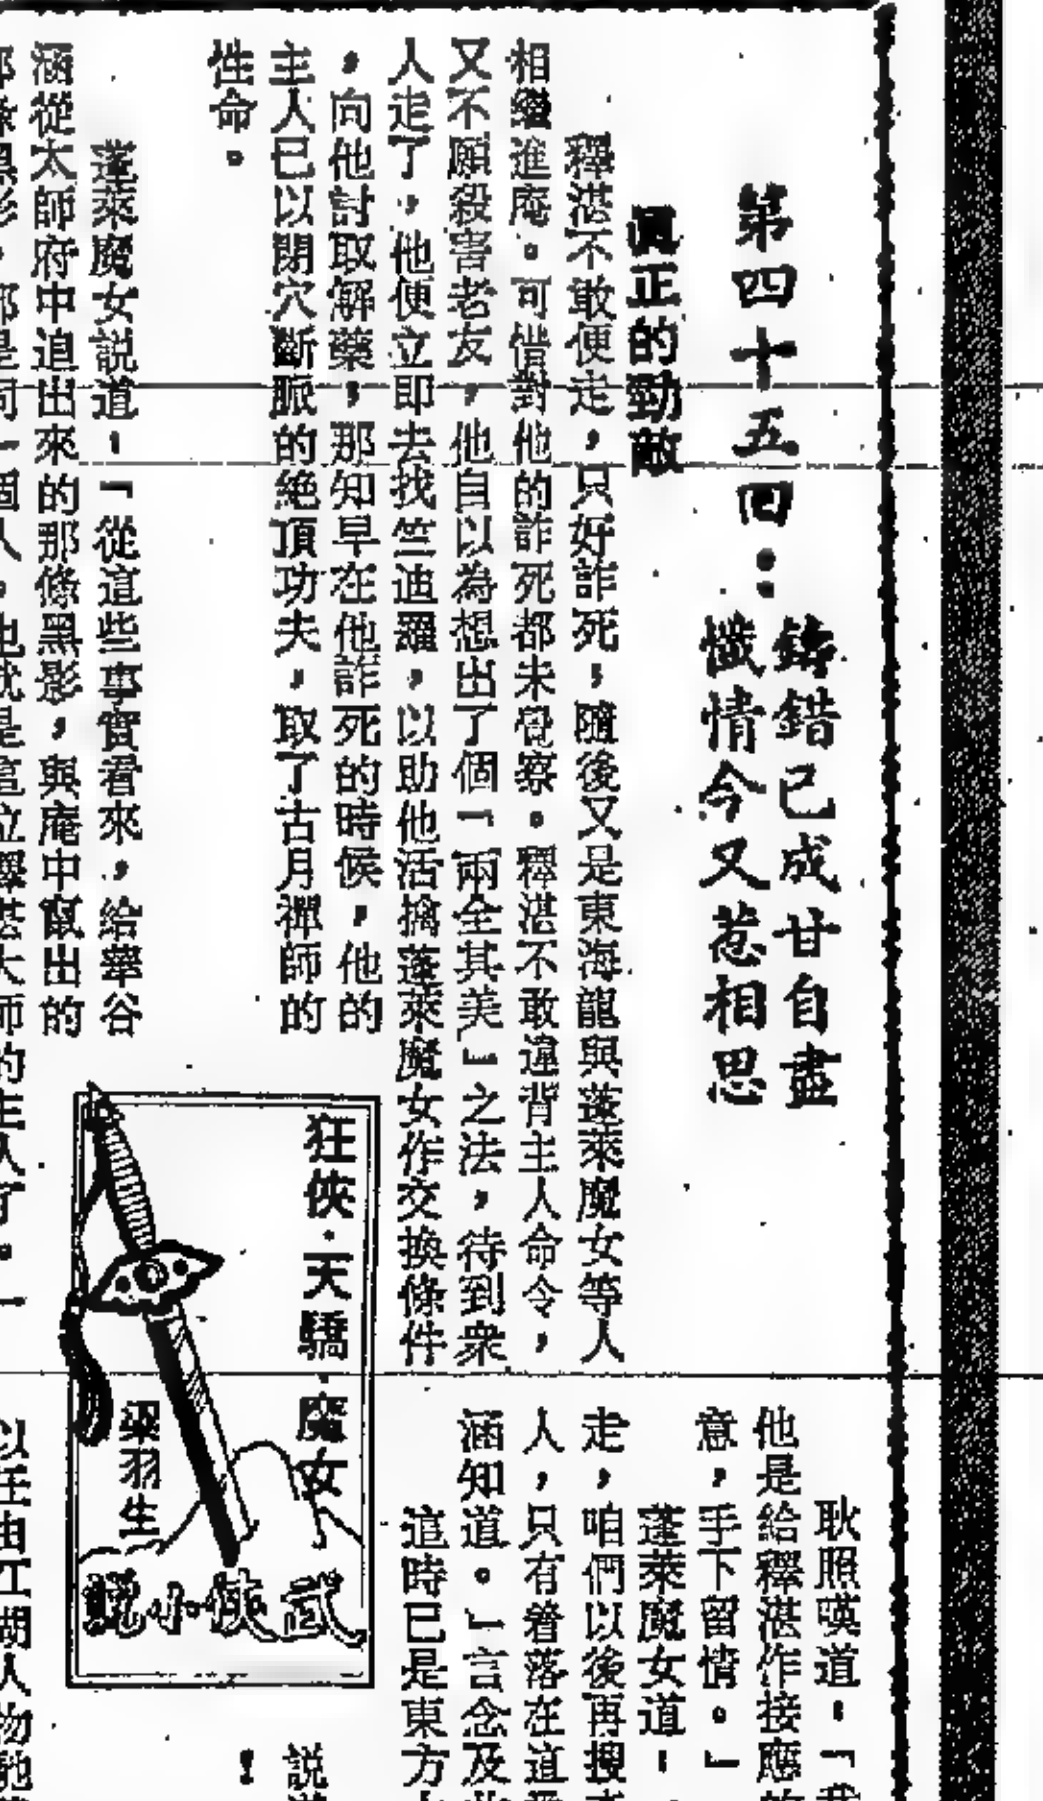 第四十五回：
鑄錯已成甘自盡
懺情今又惹相思
真正的勁敵
釋湛不敢便走，只好詐死，隨後又是東海龍與蓬萊魔女等人
相繼進庵。可惜對他的詐死都未覺察。釋湛不敢違背主人命令，
又不願殺害老友，他自以為想出了個「兩全其美」之法，待到衆
人走了，他便立即去找竺迪羅，以助他活擒蓬萊魔女作交換條件
，向他討取解藥，那知早在他詐死的時候，他的
主人已以閉穴斷脈的絕頂功夫，取了古月禪師的
性命。
蓬萊魔女説道：「從這些事實看來，給華谷
涵從太師府中追出來的那條黑影，與庵中竄出的
那條黑影，那是同一個人，也就是這位釋湛大師的主人了。」
狂俠·天驕·魔女
梁羽生
武俠小説
耿照嘆道：「我
他是給釋湛作接應的
意，手下留情。」
蓬萊魔女道：
走，咱們以後再搜
人，只有着落在這
涵知道。」言念及此
這時已是東方
説
！
以任由江湖人物馳